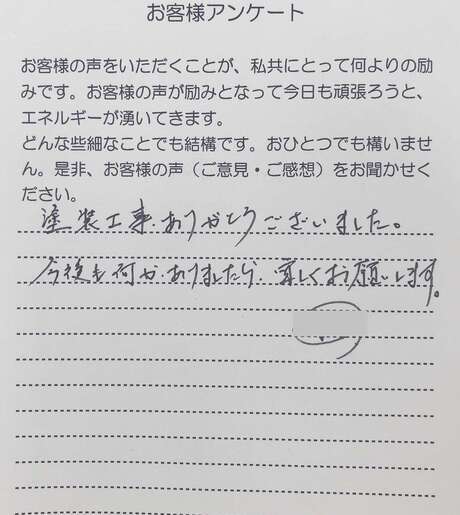 お客様アンケート
お客様の声をいただくことが、私共にとって何よりの励
みです。お客様の声が励みとなって今日も頑張ろうと、
エネルギーが湧いてきます。
どんな些細なことでも結構です。おひとつでも構いませ
ん。是非、お客様の声（ご意見・ご感想）をお聞かせく
ださい。
塗装工事ありがとうございました。
今後も何かありましたら宜しくお願いします。